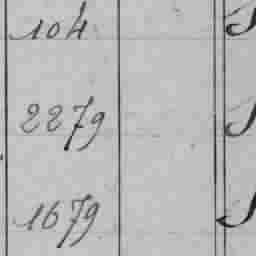 104
2279
1679